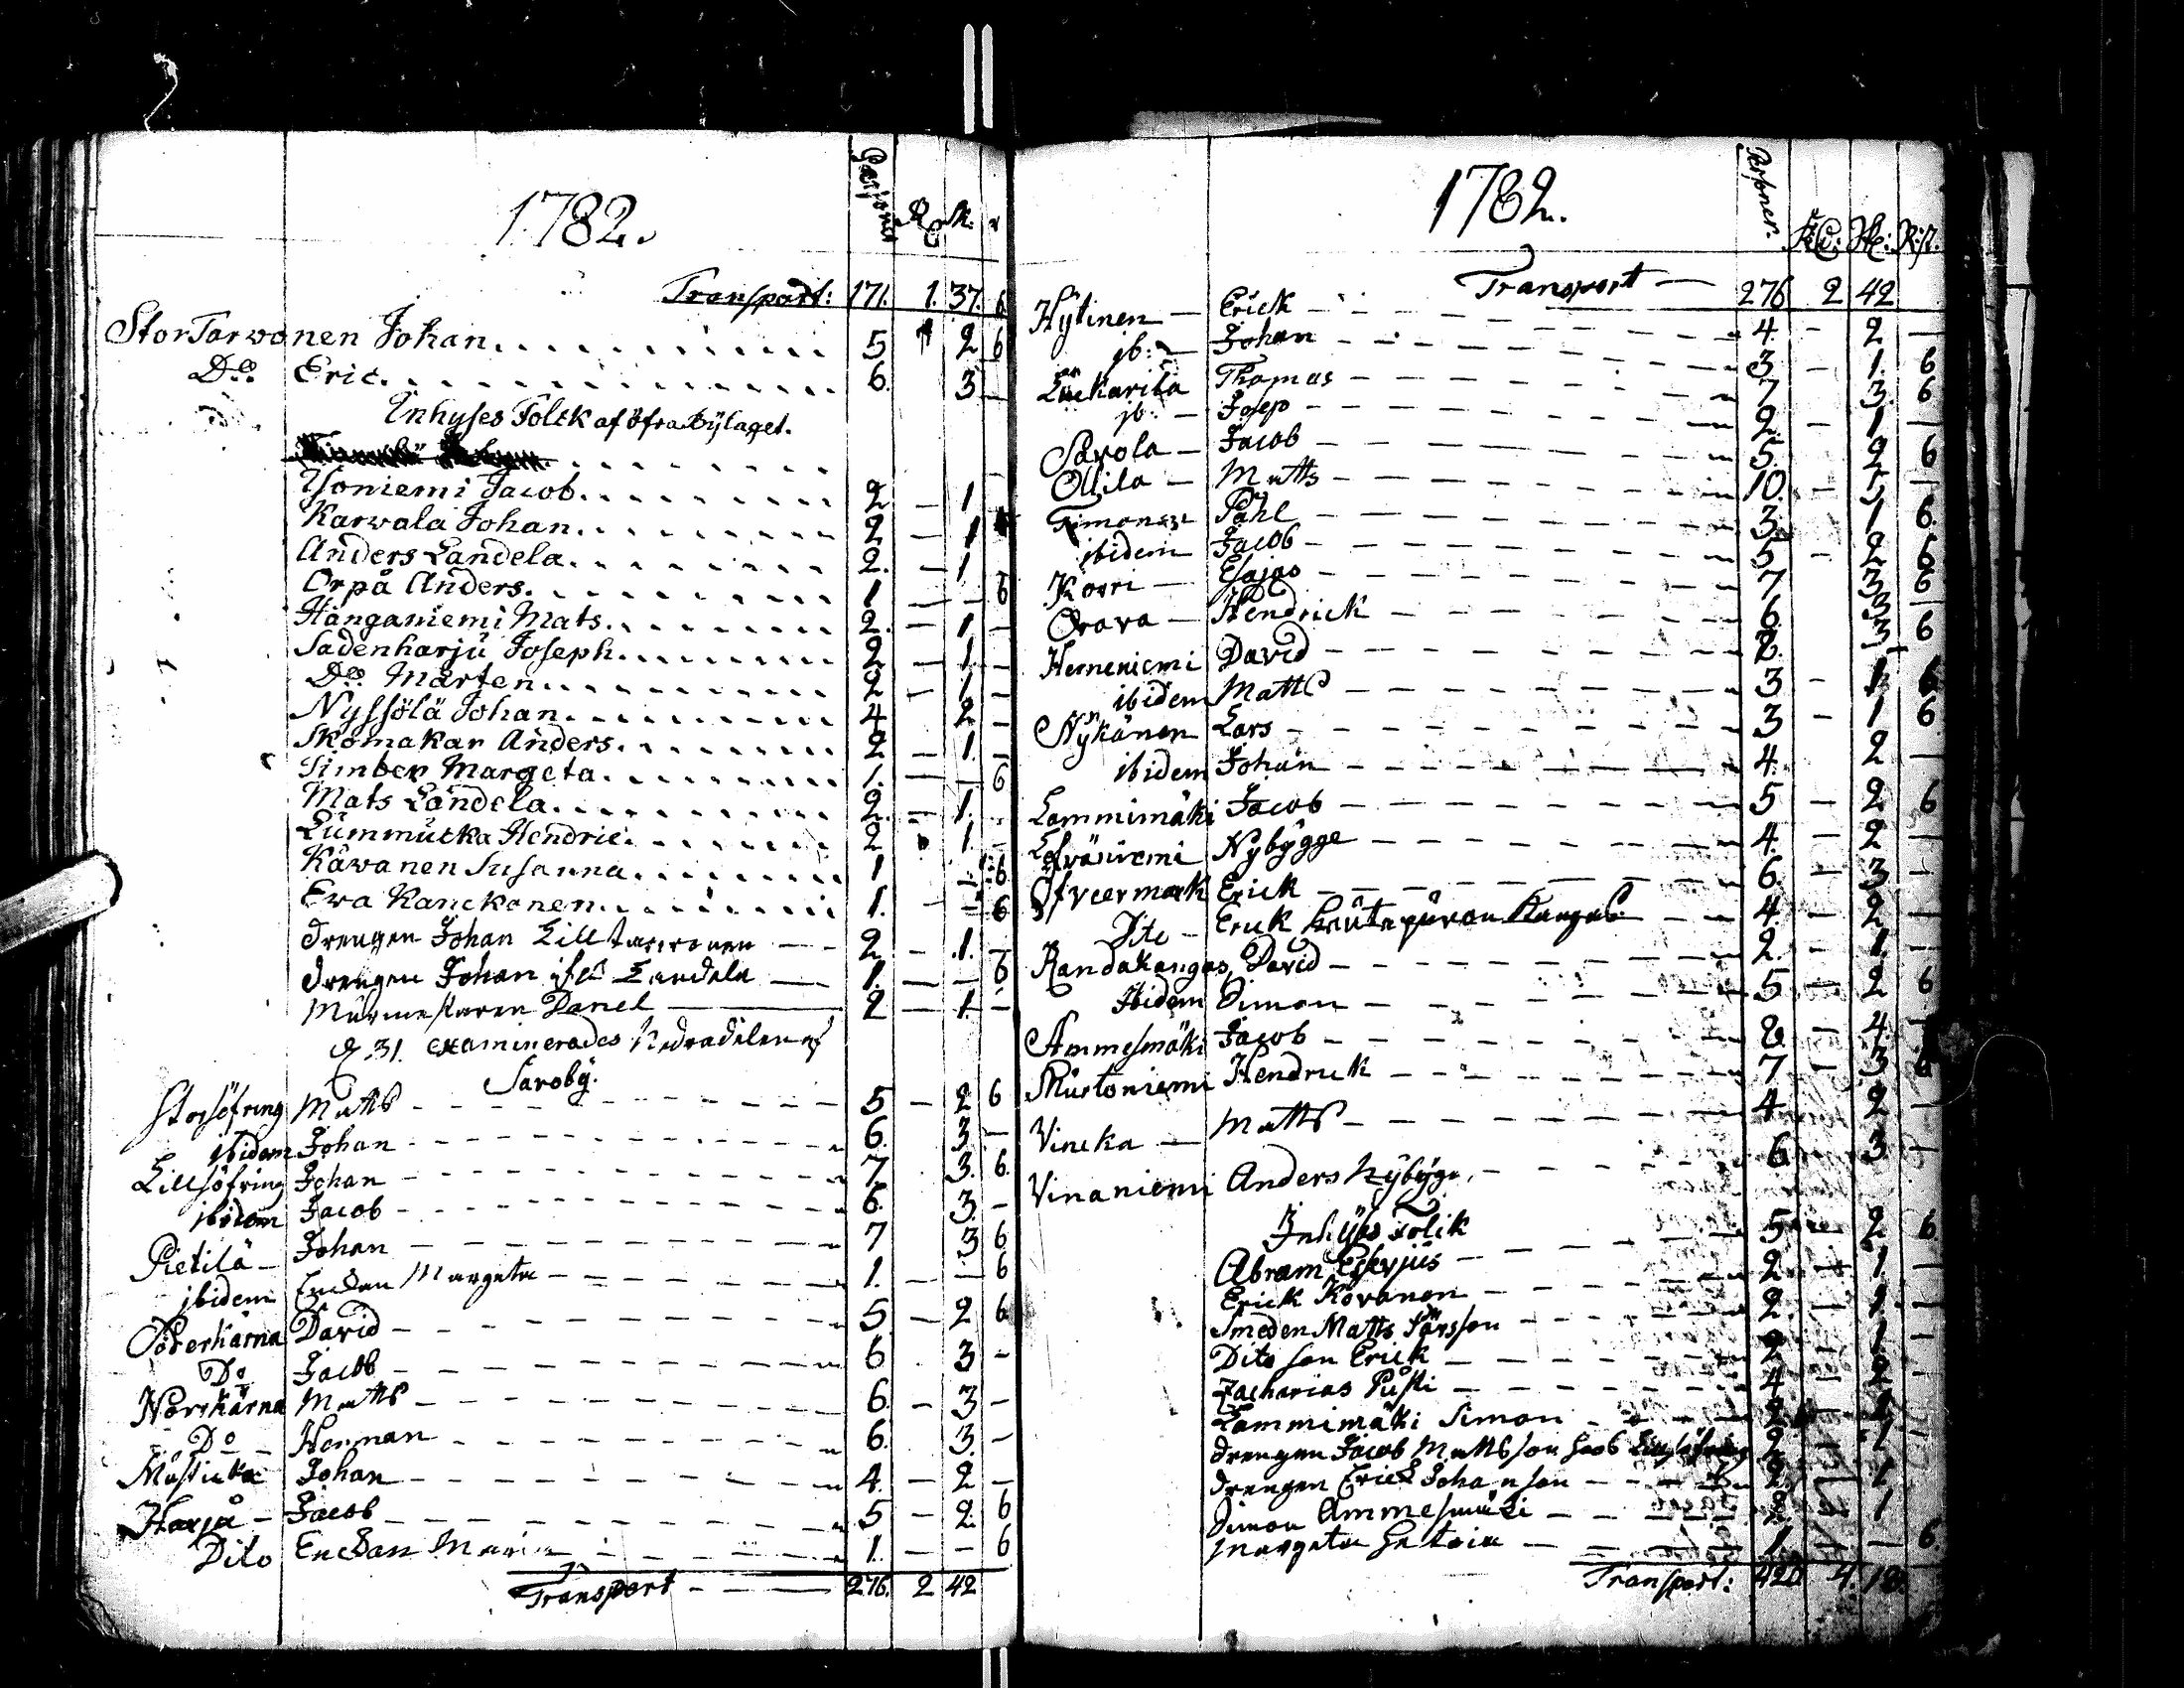 1782. Personer R: sk. r
Transport: 171. 1. 37. 6
StorTarvonen Johan 5 2 6
Do: Eric 6. 3 —
Inhyses Folck af öfra Bylaget.
Isoniemi Jacob 2 — 1
Karvala Johan 2 — 1
Anders Landela 2. — 1
Orpå Anders 1 — — 6
Hanganiemi Mats 2. — 1 —
Sadenharju Joseph 2 — 1 —
Do: Mårten 2 — 1 —
Nyssölä Johan 4 2 —
Skomakar Anders 2 — 1. —
Simber Margeta 1. — — 6
Mats Landela 2 — 1.
Lummucka Hendric 2 1. —
Käwanen Susanna 1 — 6
Ewa Kanckonen 1. — — 6
drengen Johan Lill tarvonen 2 — 1. —
drengen Johan Landela 1. — — 6
Murmestaren Danel 2 — 1. —
31. examinerades Nedradelen af
Saroby.
Storsöfring Matts 5 — 2 6
ibidem Johan 6. 3 —
Lillsöfring Johan 7. 3. 6.
ibidem Jacob 6. 3. —
Pietilä Johan 7 3 6
ibidem Enckan Margeta 1. — — 6
Österkärna David 5 — 2 6
Do Jacob 6 . 3 —
Norrkärna Matts 6. — 3 —
Do Herman 6. 3. —
Mustucka Johan 4. — 2 —
Harju Jacob 5 — 2. 6
Dito Enckan Maria 1. — — 6
Transport 276. 2 42
1782. Personer. Rd: sk: R:st.
Transport 276 2 42
Hytinen Erick 4. — 2 —
jb: Johan 3 — 1. 6
Luckarila Thomas 7 3. 6
jb: Josep 2. — 1 —
Savola Jacob 5. 2 6
Ollila Matts 10. — 5 —
Simonen Påhl 3. 1 6.
ibidem Jacob 5 — 2 6
Korri Esajas 7 3 6
Orava Hendrick 6. 3 —
Herneniemi David 2.
ibidem Matts 3 — 1 6
Nykänen Lars 3 — 1 6
ibidem Johan 4. 2 —
Lammimäki Jacob 5 — 2 6
Nybygge 4. — 2 —
Öfvermark Erick 6. — 3 —
Dito Erick 4. — 2 —
Randakangas David 2. — 1. —
Ibidem Simon 5 — 2 6
Ammesmäki Jacob 8 — 4. —
Murtoniemi Hendrick 7 — 3 6
Vincka Matts 4. 2 —
Vinaniemi Anders Nybygg. 6 3 —
Inhyses Folck
Abram 5 2 6.
Erick Kovanen 2 1.
Smeden Matts Pärsson 2 1.
Dito son Erick 2 1
Zacharias Pusti 4 2
Lammimäki Simon 2 1
drengen Jacob Mattsson hoos Lillsöfring 2 1
drengen Erick Johanson 2 1
Simon Ammesmäki 2. 1
Margeta 1. — 6.
Transport: 420 4. 18.